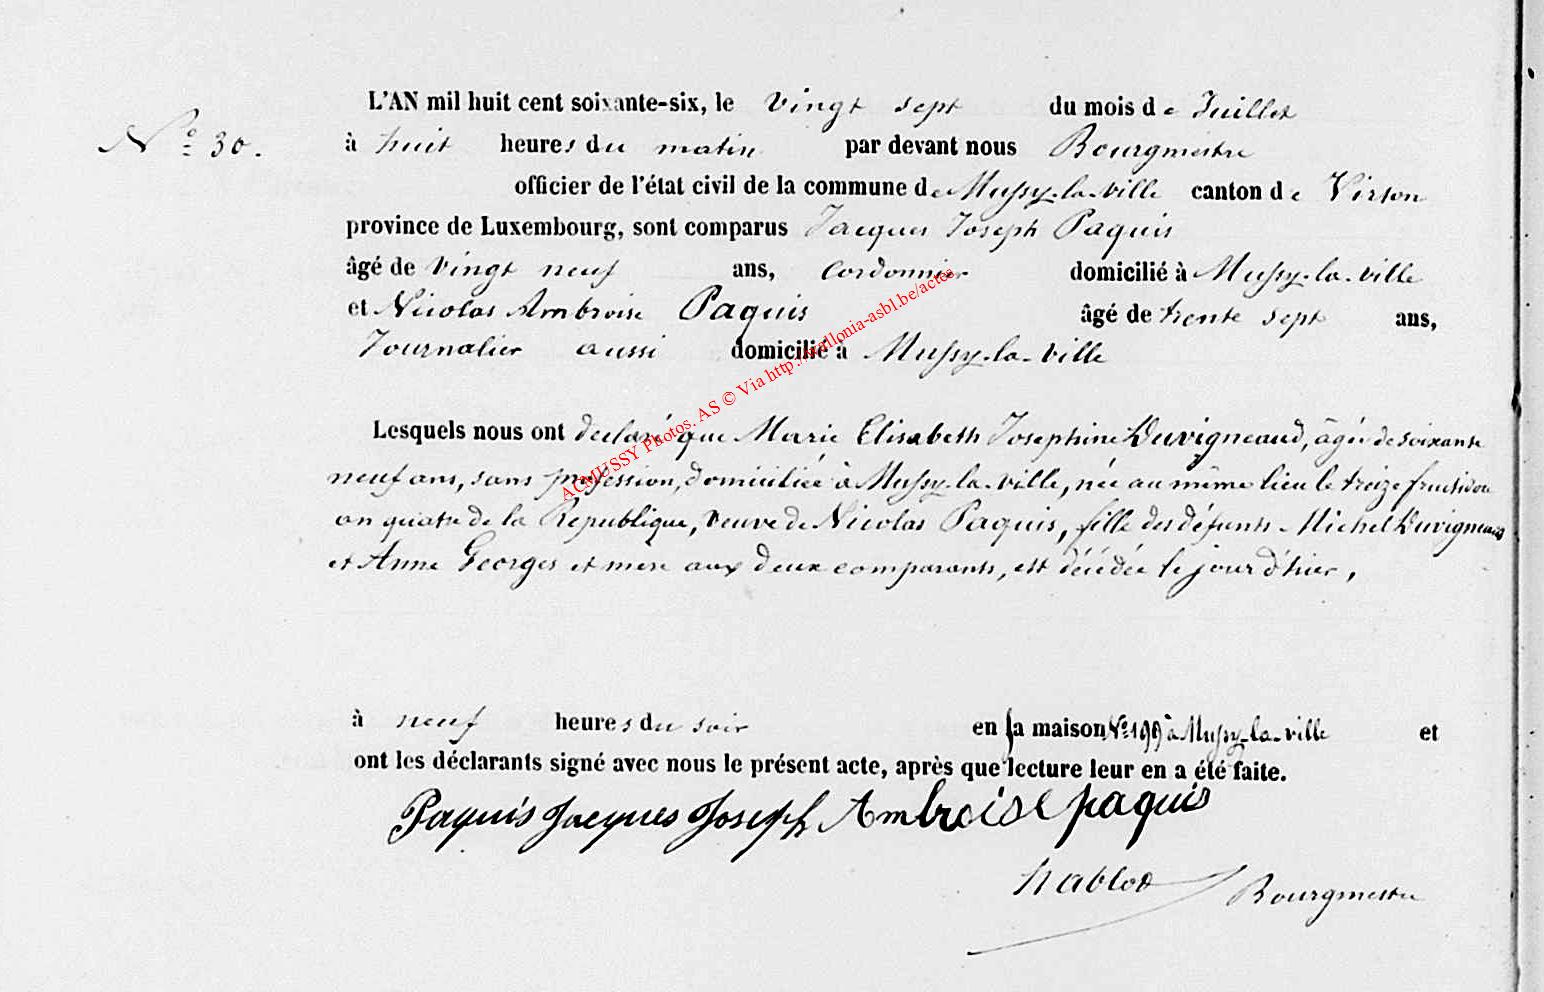 L'AN mil huit cent soixante-six, le vingt sept du mois de Juillet
N° 30. à huit heures du matin par devant nous Bourgmestre
officier de l'état civil de la commune de Mussy-la-ville canton de Virton
province de Luxembourg, sont comparus Jacques Joseph Paquis
âgé de vingt neuf ans, Cordonnier domicilié à Mussy-la-ville
et Nicolas Ambroise Paquis âgé de trente sept ans,
Journalier aussi domicilié à Mussy-la-ville
Lesquels nous ont déclaré que Marie Elisabeth Josephine Duvigneaud, âgée de soixante
neuf ans, sans profession, domiciliée à Mussy-la-ville, née au même lieu le treize fructidor
an quatre de la Republique, veuve de Nicolas Paquis, fille des défunts Michel Duvigneaud
et Anne Georges et mère aux deux comparants, est décédée le jour d'hier,
à neuf heures du soir en sa maison N° 199 à Mussy-la-ville et
ont les déclarants signé avec nous le présent acte, après que lecture leur en a été faite.
Paquis Jacques Joseph Ambroise paquis
nablot Bourgmestre
ACMUSSY Photos. AS © Via http://wallonia-asbl.be/actes.